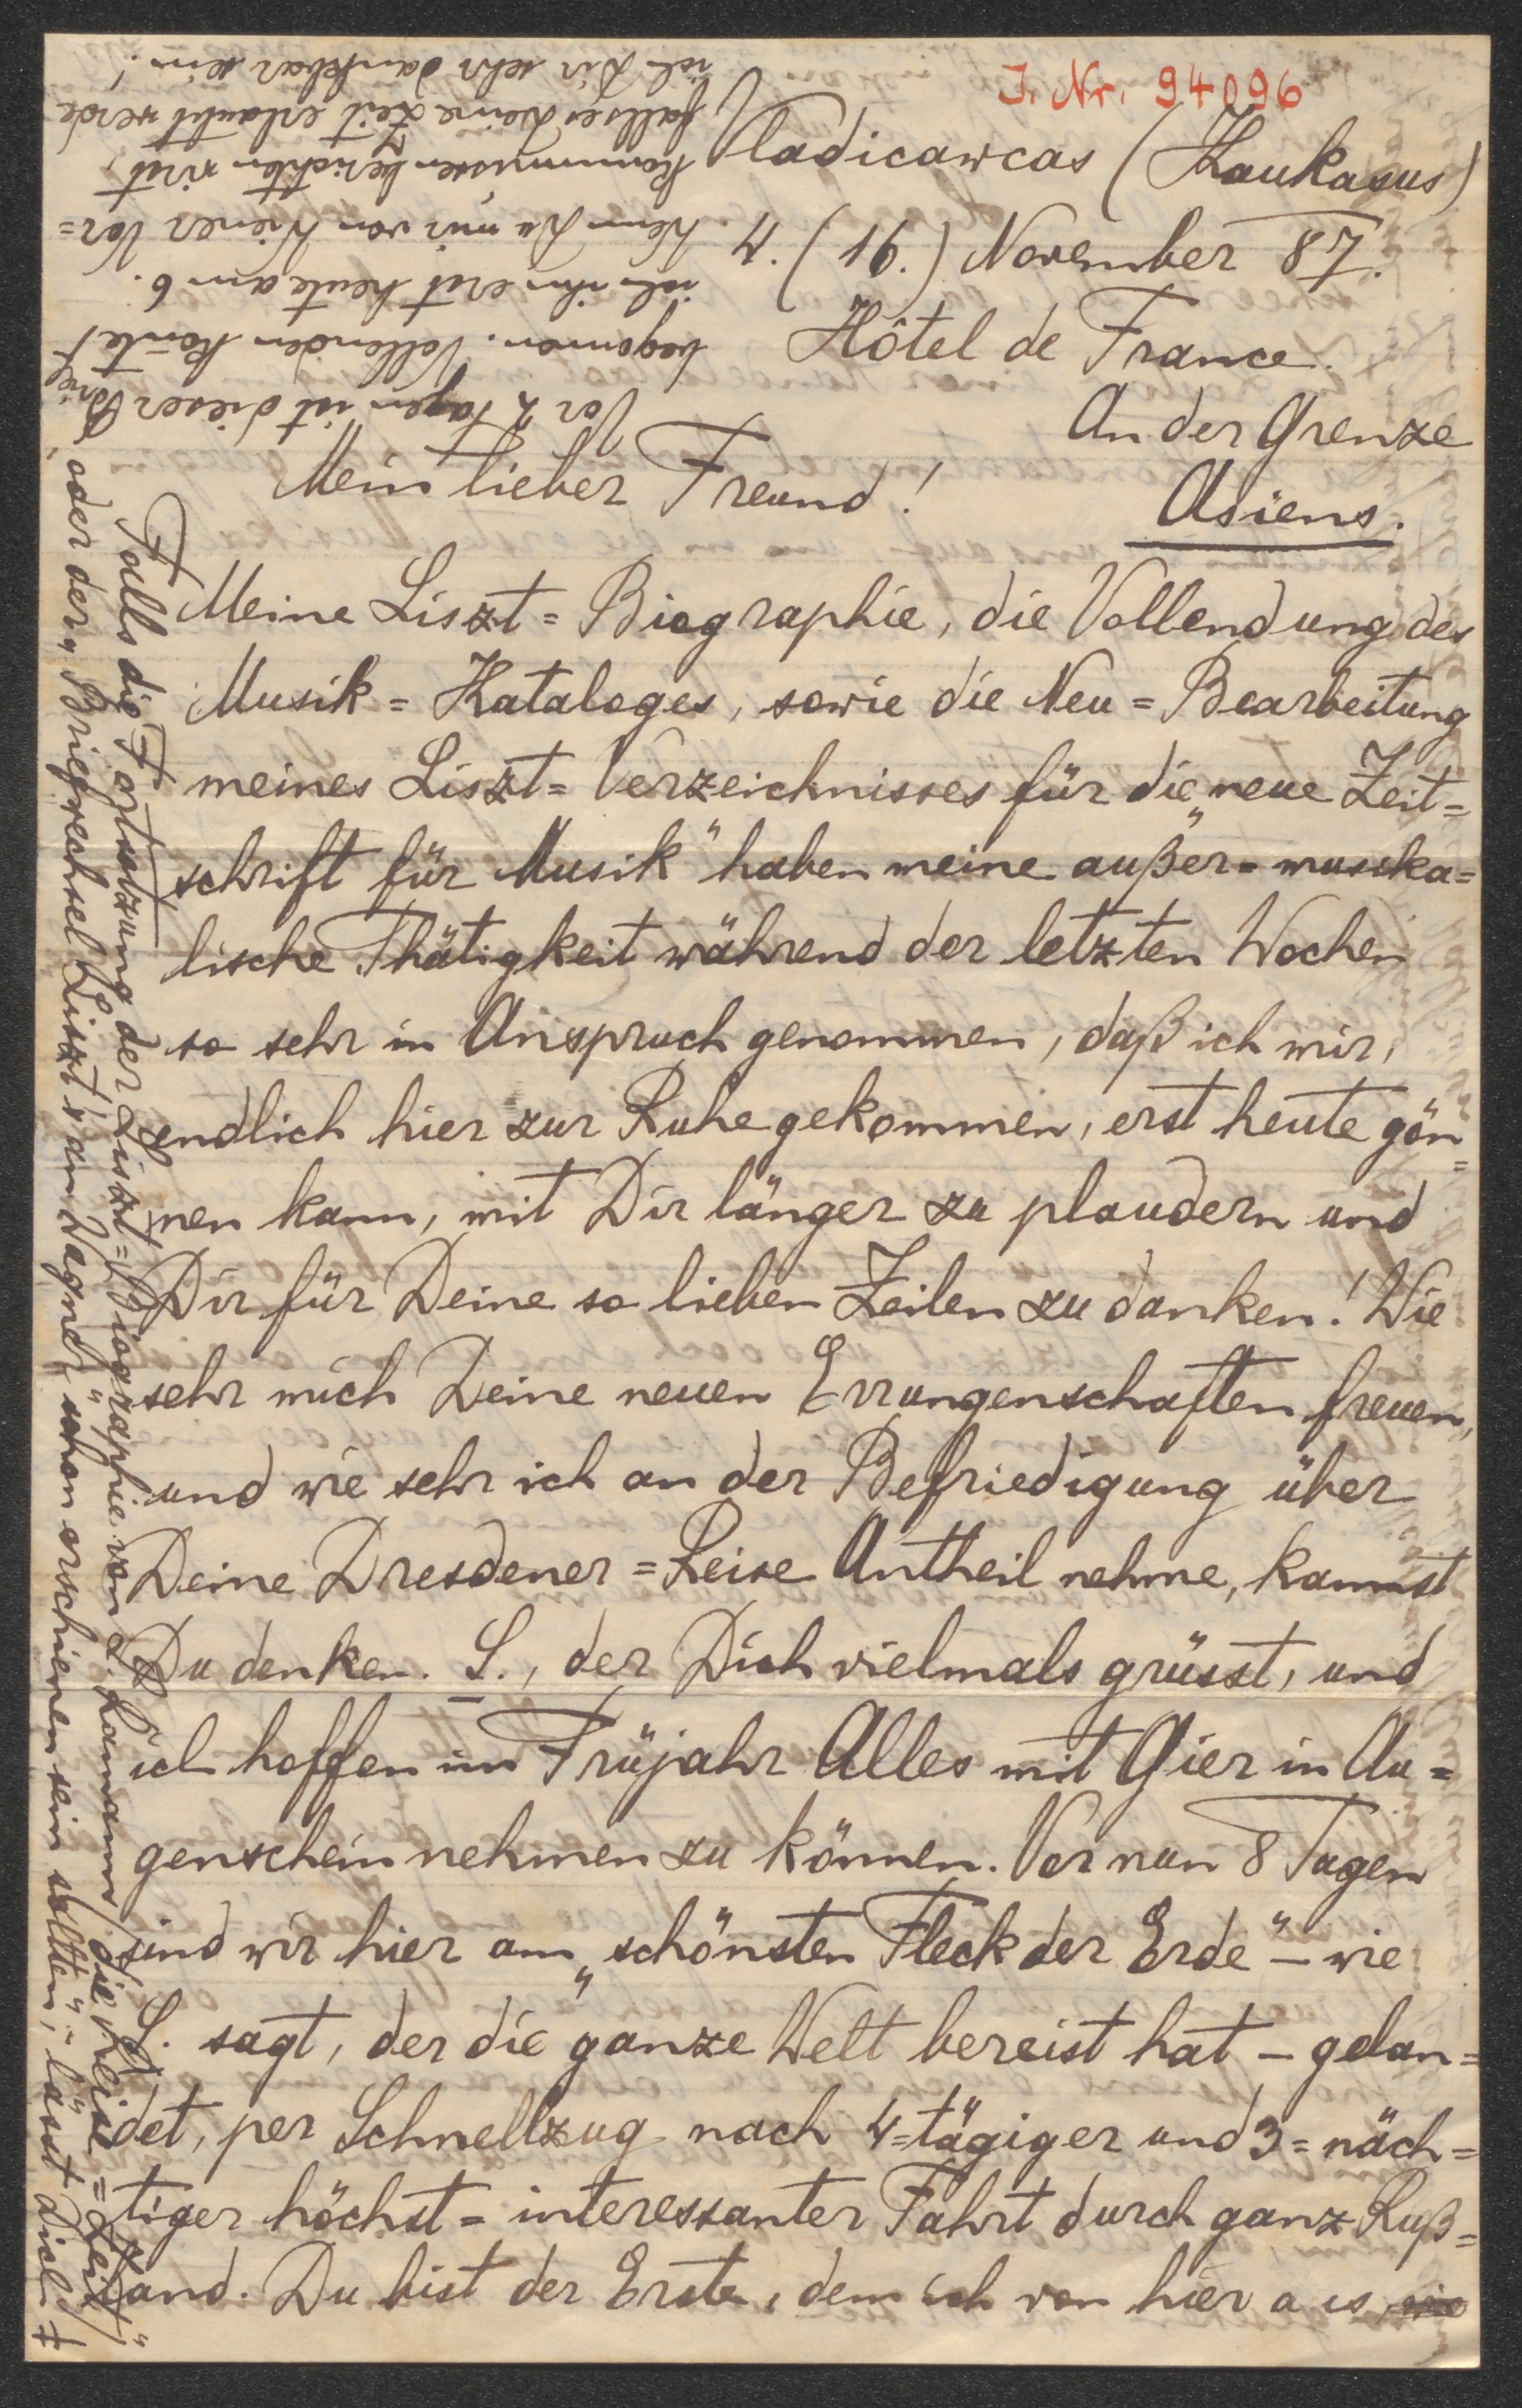 J. Nr. 94096
Vladicawcas (Kaukasus)
4. (16.) November 87.
Hôtel de France.
An der Grenze
Asiens.
Mein lieber Freund!
Meine Liszt=Biographie, die Vollendung des
Musik=Kataloges, sowie die Neu=Bearbeitung
meines Liszt=Verzeichnisses für die „neue Zeit=
schrift für Musik" haben meine außer=musika=
lische Thätigkeit während der letzten Wochen
so sehr in Anspruch genommen, daß ich mir,
endlich hier zur Ruhe gekommen, erst heute gön=
nen kann, mit Dir länger zu plaudern und
Dir für Deine so lieben Zeilen zu danken! Wie
sehr mich Deine neuen Errungenschaften freuen,
und wie sehr ich an der Befriedigung über
Deine Dresdener=Reise Antheil nehme, kannst
Du denken. S., der Dich vielmals grüsst, und
ich hoffen im Früjahr Alles mit Gier in Au=
genschein nehmen zu können. Vor nun 8 Tagen
sind wir hier am „schönsten Fleck der Erde" – wie
S. sagt, der die ganze Welt bereist hat – gelan=
det, per Schnellzug nach 4=tägiger und 3=näch=
tiger höchst=interessanter Fahrt durch ganz Ruß=
land. Du bist der Erste, dem ich von hier aus
Vor 2 Tagen ist dieser Brief
begonnen. Vollenden konnte
ich ihn erst heute am 6.
Wenn Du mir von Wiener Vor=
kommnissen berichten wirst,
falls es Deine Zeit erlaubt werde
ich Dir sehr dankbar sein!
Falls die Fortsetzung der Liszt=Biographie von L. Ramann (die „Reise=Zeit")
oder der „Briefwechsel Liszt's an Wagner" schon erschienen sein sollten, lässt Dich ‡